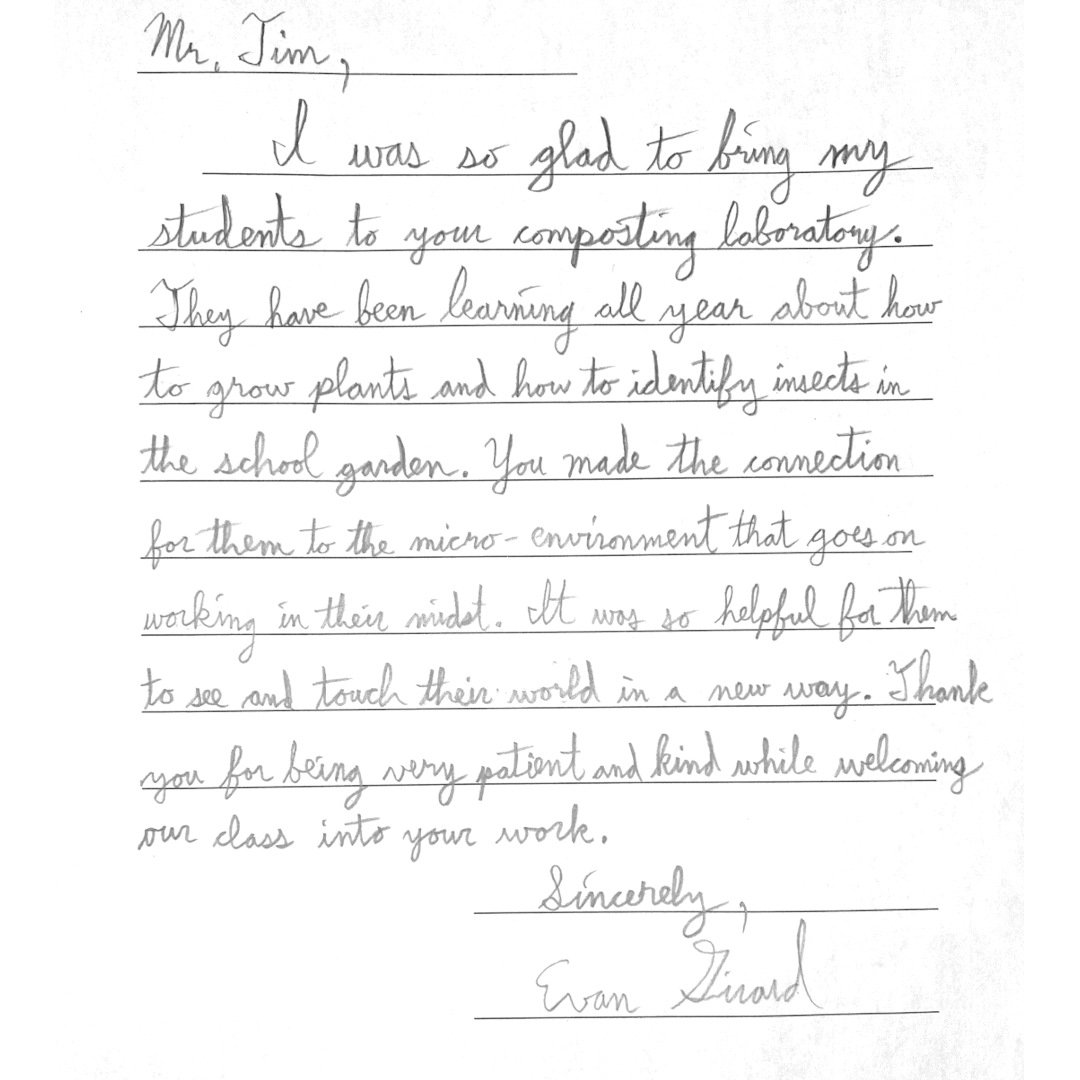 Mr. Tim,
I was so glad to bring my
students to your composting laboratory.
They have been learning all year about how
to grow plants and how to identify insects in
the school garden. You made the connection
for them to the micro-environment that goes on
working in their midst. It was so helpful for them
to see and touch their world in a new way. Thank
you for being very patient and kind while welcoming
our class into your work.
Sincerely,
Evan Girard